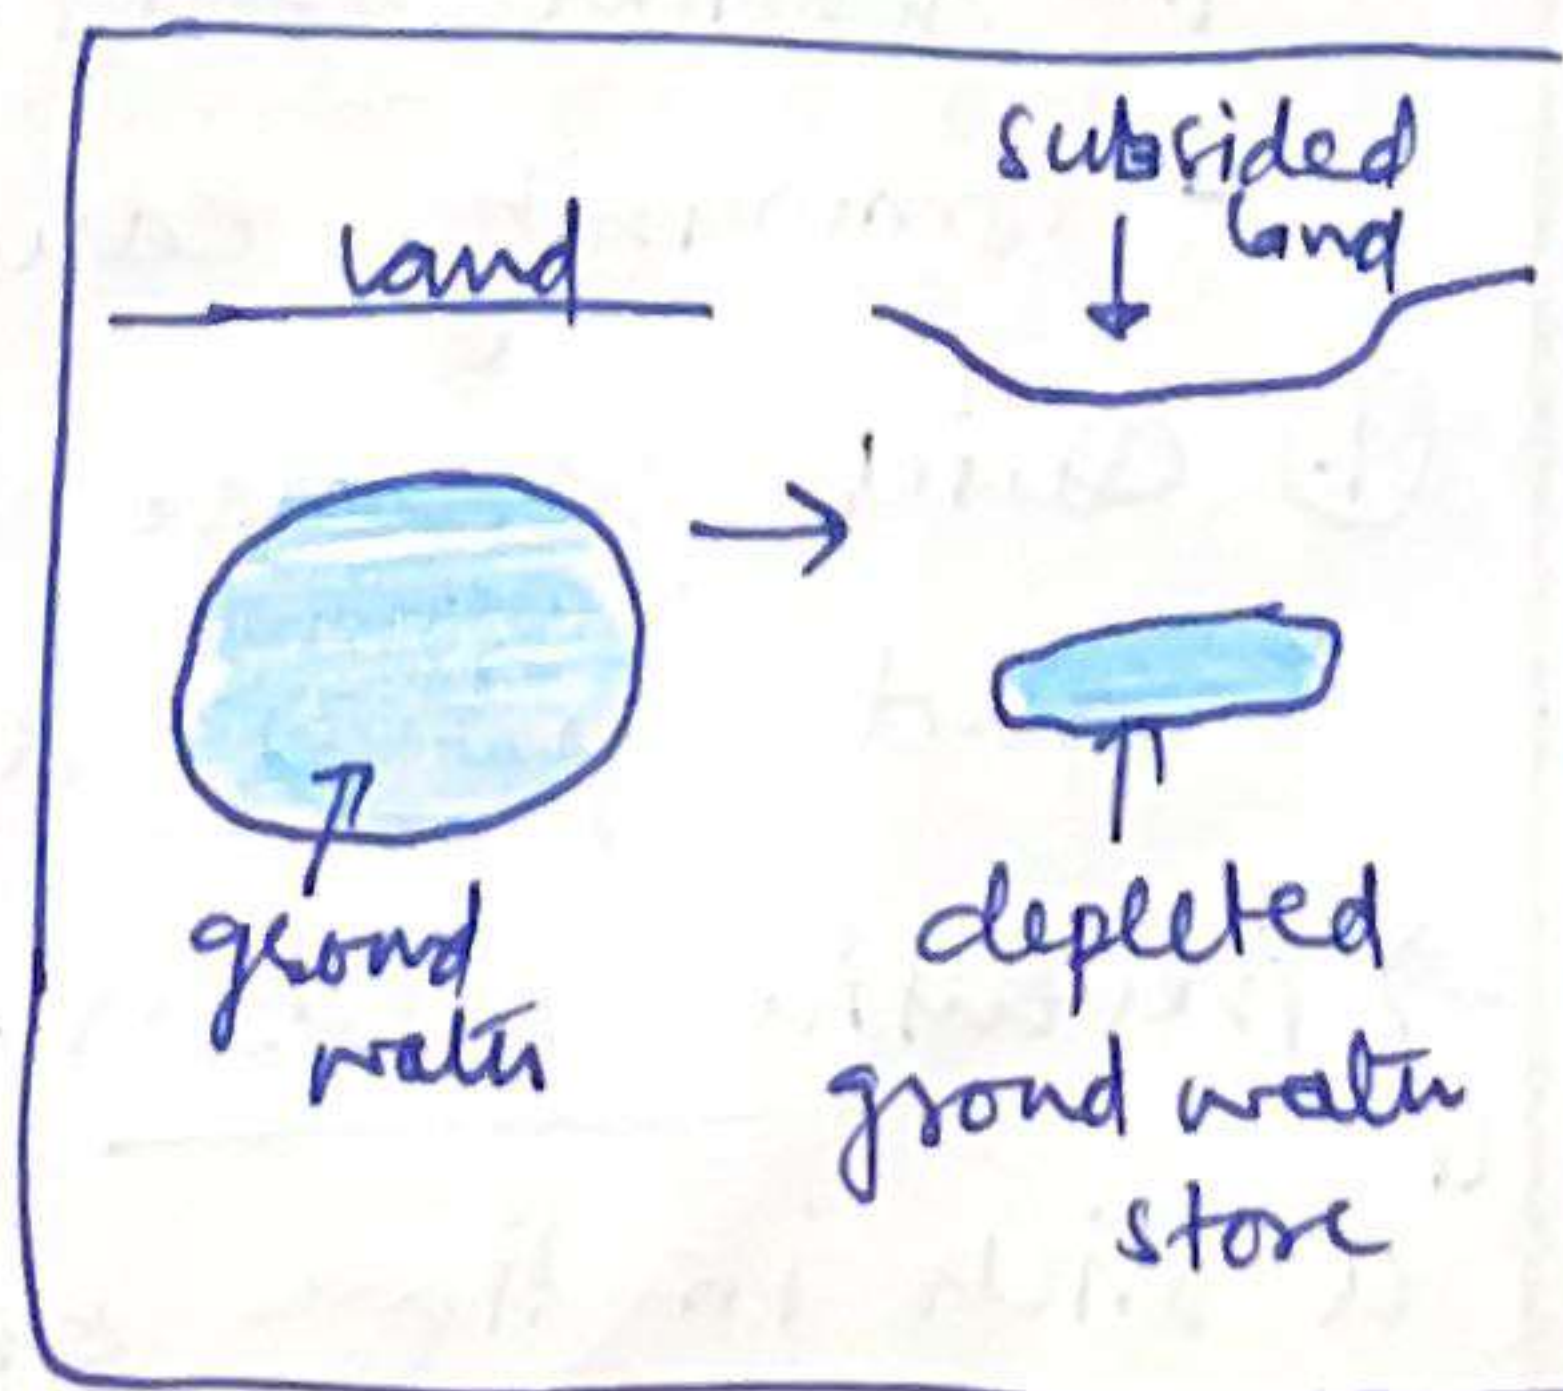 land
subsided
land
grond
water
depleted
grond water
store